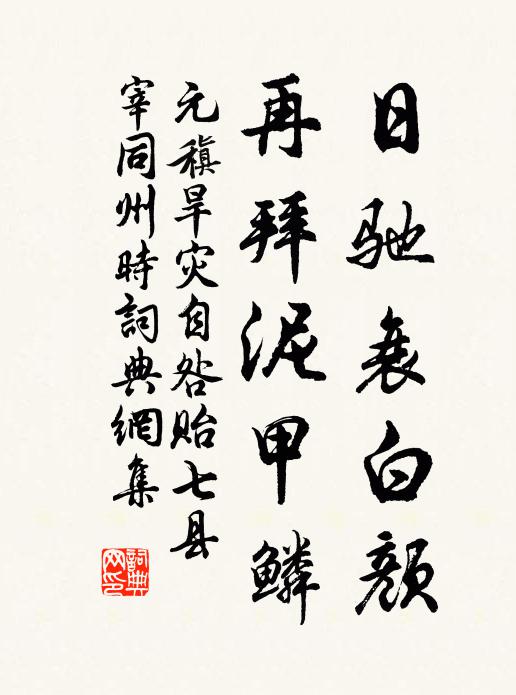 日驰衰白颜
再拜泥甲鳞
元稹旱灾自咎贻七县
宰同州時詞典網集
詞典網印